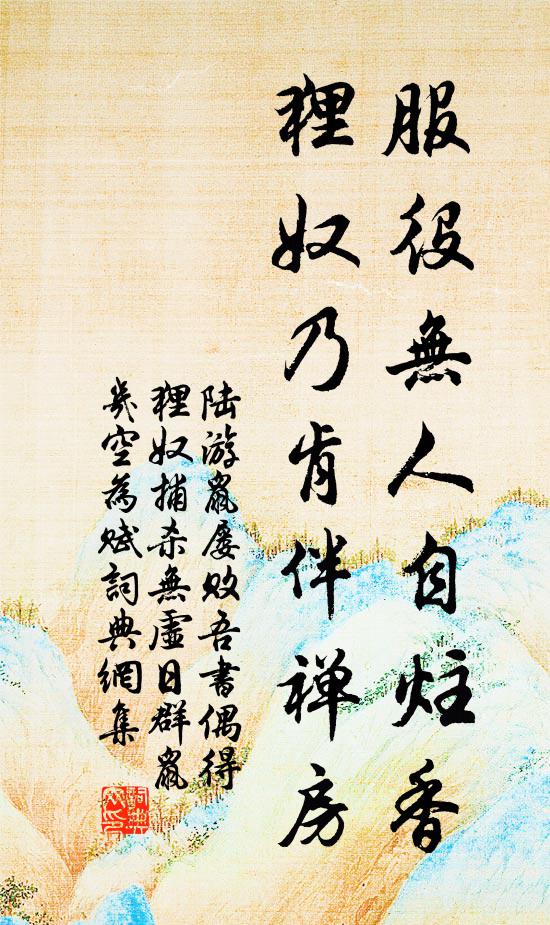 服役無人自炷香
狸奴乃肯伴禅房
陆游鼠屡败吾書偶得
狸奴捕杀無虛日群鼠
幾空為赋詞典網集